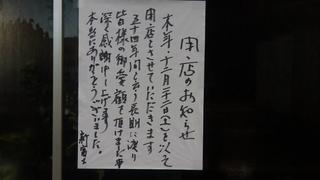 閉店のお知らせ
本年十二月二十二日(土)を以て
閉店とさせていただきます
五十四年間という長期に渡り
皆様の御愛顧を頂けました事
深く感謝申し上げます
本当にありがとうございました。